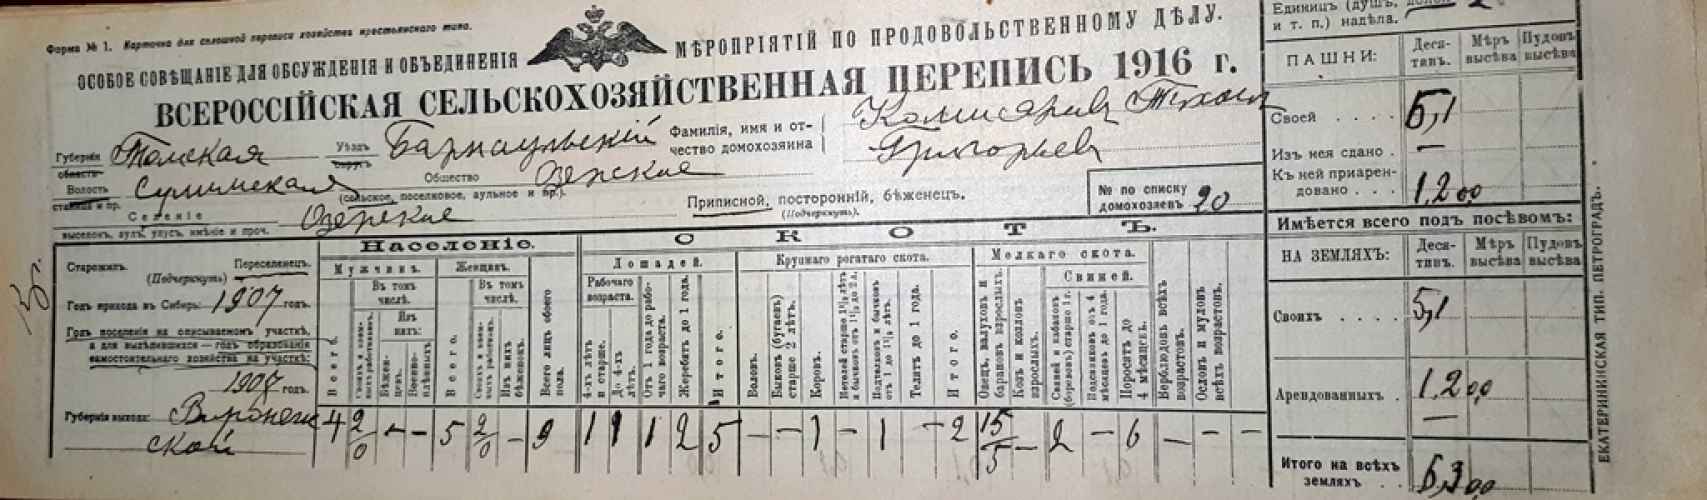 Форма № 1. Карточка для сплошной переписи хозяйства крестьянскаго типа.
ОСОБОЕ СОВѢЩАНІЕ ДЛЯ ОБСУЖДЕНІЯ И ОБЪЕДИНЕНІЯ МѢРОПРІЯТІЙ ПО ПРОДОВОЛЬСТВЕННОМУ ДѢЛУ.
ВСЕРОССІЙСКАЯ СЕЛЬСКОХОЗЯЙСТВЕННАЯ ПЕРЕПИСЬ 1916 г.
Губернія Томская Уѣздъ Барнаульскій Фамилія, имя и от-
область округъ чество домохозяина
Григорьев
Волость Общество Озерское
станица и пр. (сельское, поселковое, аульное и пр.).
Селеніе Озерское
выселокъ, аулъ, улусъ, имѣніе и проч.
Приписной, посторонній, бѣженец.
(Подчеркнуть).
№ по списку
домохозяевъ 20
Старожилъ. Переселенецъ.
(Подчеркнуть)
Годъ прихода въ Сибирь: 1907 годъ.
Годъ поселенія на описываемомъ участкѣ,
а для выдѣлившихся—годъ образованія
самостоятельнаго хозяйства на участкѣ:
1907 годъ.
Губернія выхода: Воронеж
ской
Населеніе.
Мужчинъ. Женщинъ.
Въ томъ числѣ. Въ томъ числѣ.
Изъ нихъ:
Всего.
Бѣжен-
цевъ.
Военно-
плѣнныхъ
Всего.
Изъ нихъ
бѣженокъ.
Всего лицъ обоего
пола.
СКОТЪ.
Лошадей.
Рабочаго
возраста.
4-хъ лѣтъ
и старше.
До 4-хъ
лѣтъ.
Отъ 1 года до рабо-
чаго возраста.
Жеребятъ до 1 года.
Итого.
Крупнаго рогатаго скота.
Воловъ.
Быковъ (бугаевъ)
старше 2 лѣтъ.
Коровъ.
Нетелей старше 1½ лѣтъ
и бычковъ отъ 1½ до 2 л.
Подтелковъ и бычковъ
отъ 1 до 1½ лѣтъ.
Телятъ до 1 года.
Итого.
Мелкаго скота.
Овецъ, валуховъ и
барановъ взрослыхъ.
Козъ и козловъ
взрослыхъ.
Свиней.
Свиней и кабановъ
(борововъ) старше 1 г.
Подсвинковъ отъ 4
мѣсяцевъ до 1 года.
Поросятъ до
4 мѣсяцевъ.
Верблюдовъ всѣхъ
возрастовъ.
Ословъ и муловъ
всѣхъ возрастовъ.
4 2/0 — — 5 2/0 — 9 1 1 1 2 5 — — 1 — 1 — 2 15/5 — 2 — 6 — — —
Единицъ (душъ,
и т. п.) надѣла.
ПАШНИ: Деся-
тинъ. Мѣръ
высѣва Пудовъ
высѣва
Своей 5,1
Изъ нея сдано —
Къ ней приарен-
довано 1,200
Имѣется всего подъ посѣвомъ:
НА ЗЕМЛЯХЪ: Деся-
тинъ. Мѣръ
высѣва Пудовъ
высѣва
Своихъ 5,1
Арендованныхъ 1,200
—
Итого на всѣхъ
земляхъ 6,300
ЕКАТЕРИНИНСКАЯ ТИП. ПЕТРОГРАДЪ.